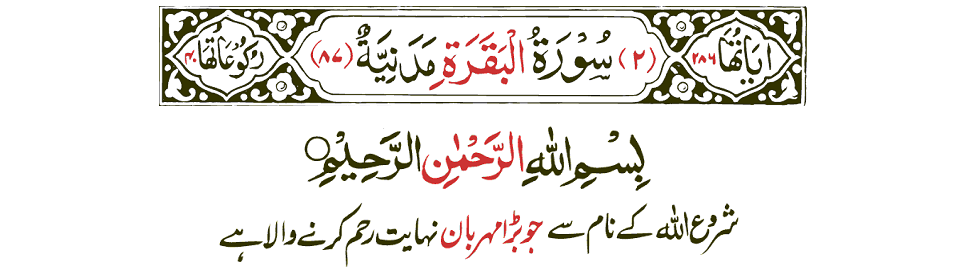 اٰيَاتُهَا ٢٨٦ (٢) سُوْرَةُ الْبَقَرَةِ مَدَنِيَّةٌ (٨٧) رُكُوْعَاتُهَا ٤٠
بِسْمِ اللهِ الرَّحْمٰنِ الرَّحِيْمِ
شروع اللہ کے نام سے جو بڑا مہربان نہایت رحم کرنے والا ہے